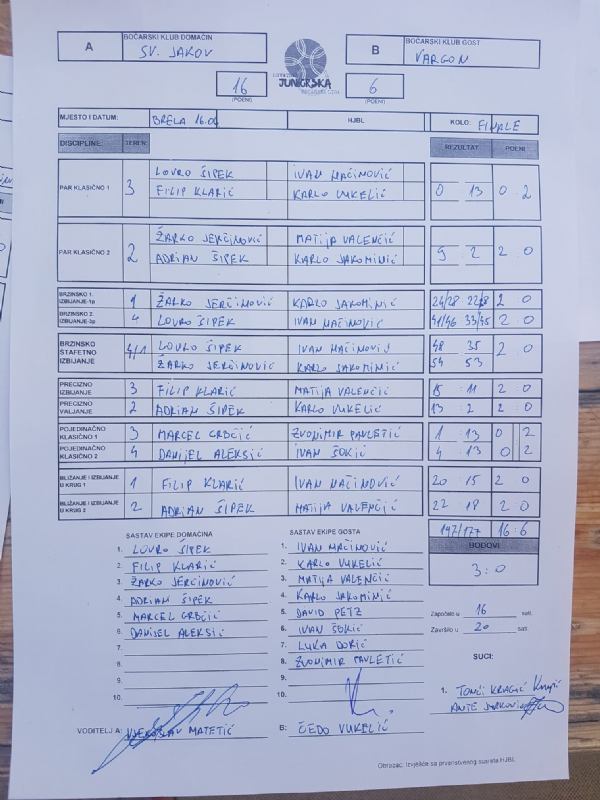 A BOĆARSKI KLUB DOMAĆIN SV. JAKOV
B BOĆARSKI KLUB GOST VARGON
JUNIORSKA
16 (POENI) 6 (POENI)
MJESTO I DATUM: BRELA HJBL KOLO: FINALE
DISCIPLINE: TEREN: REZULTAT POENI
PAR KLASIČNO 1 3 LOVRO ŠIPEK IVAN MAČINOVIĆ 0 13 0 2
FILIP KLARIĆ KARLO VUKELIĆ
PAR KLASIČNO 2 2 ŽARKO JERČINOVIĆ MATIJA VALENČIĆ 9 2 2 0
ADRIAN ŠIPEK KARLO JAKOMINIĆ
BRZINSKO 1. IZBIJANJE-1p 1 ŽARKO JERČINOVIĆ KARLO JAKOMINIĆ 24/28 2 0
BRZINSKO 2. IZBIJANJE 4 LOVRO ŠIPEK IVAN MAČINOVIĆ 41/46 33/45 2 0
BRZINSKO ŠTAFETNO IZBIJANJE 4/1 LOVRO ŠIPEK IVAN MAČINOVIĆ 48 35 2 0
ŽARKO JERČINOVIĆ KARLO JAKOMINIĆ 54 53
PRECIZNO IZBIJANJE 3 FILIP KLARIĆ MATIJA VALENČIĆ 15 11 2 0
PRECIZNO VALJANJE 2 ADRIAN ŠIPEK KARLO VUKELIĆ 13 2 2 0
POJEDINAČNO KLASIČNO 1 3 MARCEL GRBČIĆ ZVONIMIR PAVLETIĆ 1 13 0 2
POJEDINAČNO KLASIČNO 2 4 DANIJEL ALEKSIĆ IVAN ŠOKIĆ 4 13 0 2
BLIŽANJE I IZBIJANJE U KRUG 1 1 FILIP KLARIĆ IVAN MAČINOVIĆ 20 15 2 0
BLIŽANJE I IZBIJANJE U KRUG 2 2 ADRIAN ŠIPEK MATIJA VALENČIĆ 22 18 2 0
147/177 16:6
BODOVI
3:0
SASTAV EKIPE DOMAĆINA
1. LOVRO ŠIPEK
2. FILIP KLARIĆ
3. ŽARKO JERČINOVIĆ
4. ADRIAN ŠIPEK
5. MARCEL GRBČIĆ
6. DANIJEL ALEKSIĆ
7.
8.
9.
10.
SASTAV EKIPE GOSTA
1. IVAN MAČINOVIĆ
2. KARLO VUKELIĆ
3. MATIJA VALENČIĆ
4. KARLO JAKOMINIĆ
5 DAVID PETZ
6. IVAN ŠOKIĆ
7. LUKA DORIĆ
8 ZVONIMIR PAVLETIĆ
9.
10.
Započelo u 16 sati.
Završilo u 20 sati.
SUCI:
1. TONĆI KRAGIĆ
ANTE JURKOVIĆ
VODITELJ A: VJEKOSLAV MATETIĆ
B: ČEDO VUKELIĆ
Obrazac: Izvješće sa prvenstvenog susreta HJBL